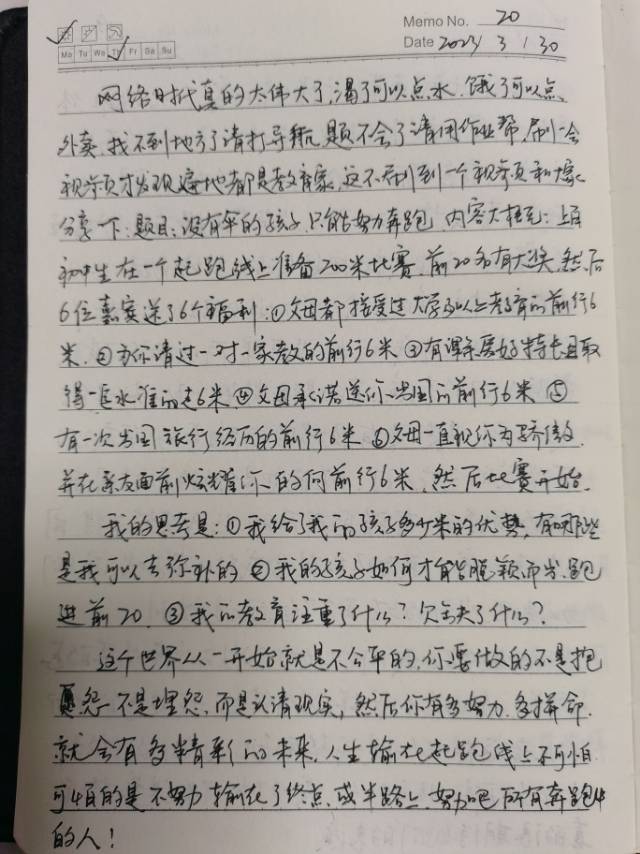 Memo No. 20
Mo Tu We Th Fr Sa Su
Date 2023 / 3 / 30
网络时代真的太伟大了,渴了可以点水.饿了可以点
外卖,找不到地方了请打导航,题不会了请用作业帮,刷一会
视频才发现遍地都是教育家,这不刷到一个视频和大家
分享一下:题目:没有伞的孩子,只能努力奔跑,内容大概:上百
初中生在一个起跑线上准备200米比赛,前20名有大奖,然后
6位嘉宾送了6个福利:①父母都接受过大学及以上教育的前行6
米.②为你请过一对一家教的前行6米③有课余爱好特长且取
得一定水准的走6米④父母承诺送你出国的前行6米⑤
有一次出国旅行经历的前行6米⑥父母一直视你为骄傲
并在亲友面前炫耀你的向前行6米,然后比赛开始.
我的思考是:①我给了我的孩子多少米的优势,有哪些
是我可以去弥补的②我的孩子如何才能脱颖而出,跑
进前20.③我的教育注重了什么?欠缺了什么?
这个世界从一开始就是不公平的,你要做的不是抱
怨不是埋怨,而是认清现实,然后你有多努力,多拼命.
就会有多精彩的未来,人生输在起跑线上不可怕
可怕的是不努力输在了终点,或半路上,努力吧所有奔跑中
的人!